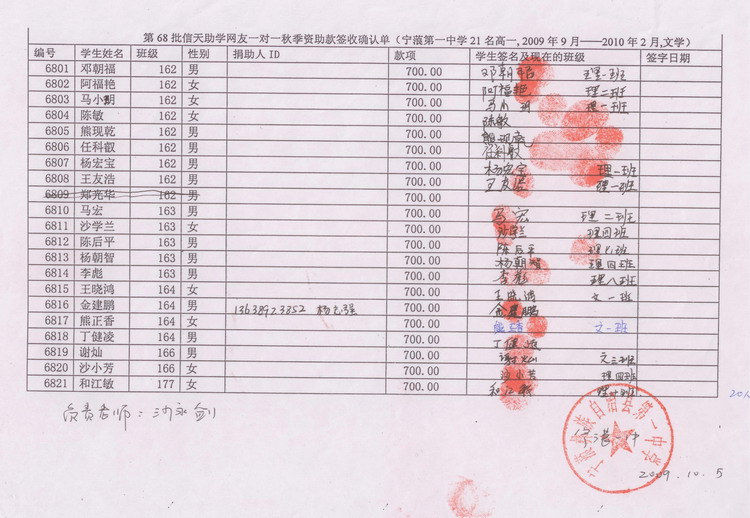 第 68 批信天助学网友一对一秋季资助款签收确认单（宁蒗第一中学 21 名高一, 2009 年 9 月——2010 年 2 月, 文学）
编号 学生姓名 班级 性别 捐助人 ID 款项 学生签名及现在的班级 签字日期
6801 邓朝福 162 男 700.00 邓朝福 理一班
6802 阿福艳 162 女 700.00 阿福艳 理二班
6803 马小玥 162 女 700.00 马小玥 理一班
6804 陈敏 162 女 700.00 陈敏
6805 熊现乾 162 男 700.00 熊现乾
6806 任科叡 162 男 700.00 任科叡
6807 杨宏宝 162 男 700.00 杨宏宝 理一班
6808 王友浩 162 男 700.00 王友浩 理一班
6809 郑光华 162 男 700.00
6810 马宏 163 男 700.00 马宏 理二班
6811 沙学兰 163 女 700.00 沙学兰 理四班
6812 陈后平 163 男 700.00 陈后平 班
6813 杨朝智 163 男 700.00 杨朝智 理四班
6814 李彪 163 男 700.00 李彪 理八班
6815 王晓鸿 164 女 700.00 王晓鸿 文一班
6816 金建鹏 164 男 700.00 金建鹏
6817 熊正香 164 女 700.00 文一班
6818 丁健凌 164 男 700.00 丁健凌
6819 谢灿 166 男 700.00 谢灿 文三班
6820 沙小芳 166 女 700.00 沙小芳 理四班
6821 和江敏 177 女 700.00 和江敏
20人
负责老师：
宁蒗彝族自治县第一中学
2009.10.5